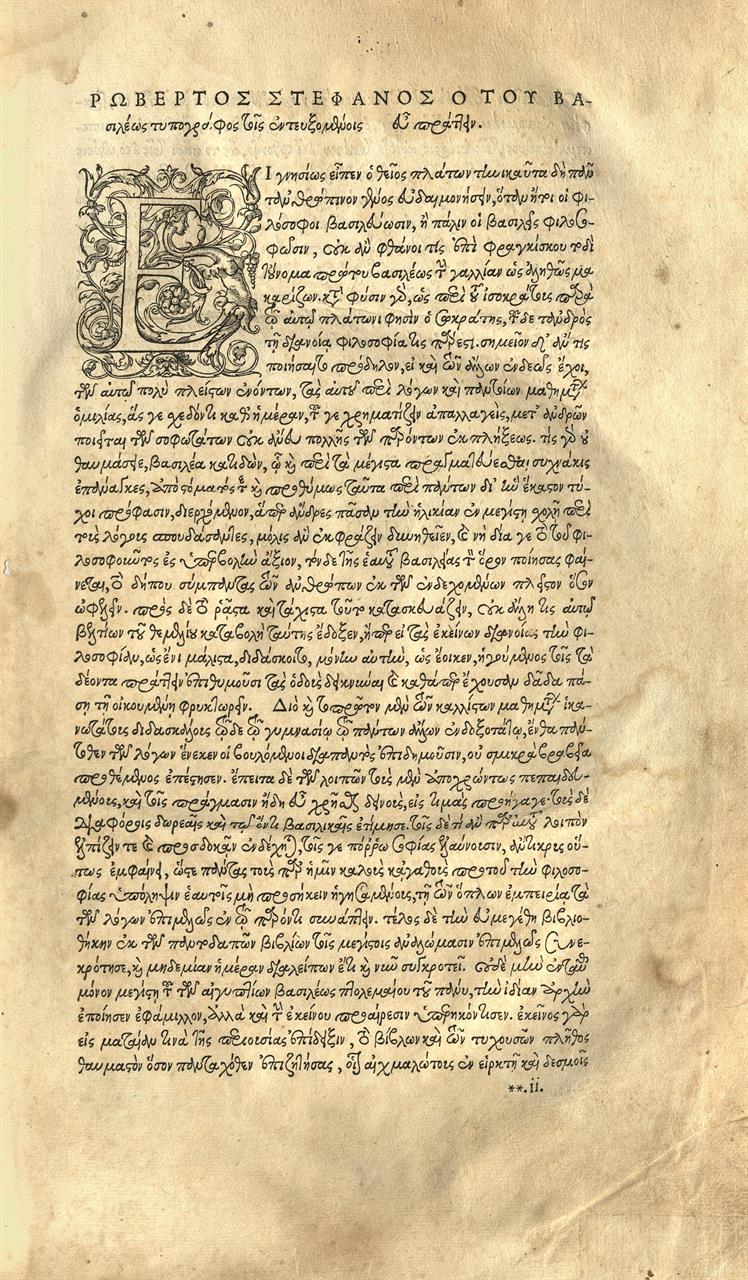 ΡΩΒΕΡΤΟΣ ΣΤΕΦΑΝΟΣ Ο ΤΟΥ ΒΑ-
σιλέως τυπογράφος τοῖς ἐντευξομένοις εὖ πράττειν.
ΕΙ γνησίως εἶπεν ὁ θεῖος πλάτων τηνικαῦτα δὴ που
τὸ ἀνθρώπινον γένος εὐδαιμονήσειν, ὅταν ἤτοι οἱ φι-
λόσοφοι βασιλεύωσιν, ἢ πάλιν οἱ βασιλεῖς φιλοσο-
φῶσιν, οὐκ ἂν φθάνοι τις ἐπὶ φραγκίσκου τοῦδε
τοὔνομα πρώτου βασιλέως τὴν γαλλίαν ὡς ἀληθῶς μα
καρίζων. κατὰ φύσιν γὰρ, ὡς περὶ τοῦ ἰσοκράτους παρὰ
τῷ αὐτῷ πλάτωνι φησὶν ὁ σωκράτης, τῇδε τἀνδρὸς
τῇ διανοίᾳ φιλοσοφία τις πάρεστι. σημεῖον δ' ἄν τις
ποιήσαιτο πρόδηλον, εἰ καὶ τῶν ἄλλων ἐνδεῶς ἔχοι,
τῶν αὐτῷ πολὺ πλείστων ἐνόντων, τὰς αὐτοῦ περὶ λόγων καὶ παντοίων μαθημάτων
ὁμιλίας, ἅς γε σχεδόν τι καθ' ἡμέραν, τοῦ γε χρηματίζειν ἀπαλλαγεὶς, μετ' ἀνδρῶν
ποιεῖται τῶν σοφωτάτων οὐκ ἄνευ πολλῆς τῶν παρόντων ἐκπλήξεως. τίς γὰρ οὐ
θαυμάσειε, βασιλέα κατιδὼν, ᾧ καὶ περὶ τὰ μέγιστα πραγματεύεσθαι συχνάκις
ἐπάναγκες, ἀπὸ στόματός τε καὶ προθύμως ταῦτα περὶ πάντων δι' ἣν ἕκαστον τύ-
χοι πρόφασιν, διερχόμενον, ἅπερ ἄνδρες πᾶσαν τὴν ἡλικίαν ἐν μεγίστῃ σχολῇ περὶ
τοὺς λόγους σπουδάσαντες, μόλις ἂν ἐκφράζειν δυνηθεῖεν, καὶ νὴ δία γε τὸ τοῦ φι-
λοσοφοῦντος ἐς ὑπερβολὴν ἄξιον, τόνδε τῆς ἑαυτοῦ βασιλείας τὸν ὅρον ποιήσας φαί-
νεται, τὸ δήπου σύμπαντας τῶν ἀνθρώπων ἐκ τῶν ἐνδεχομένων πλεῖστον ὅσον
ὠφελεῖν. πρὸς δὲ τὸ ῥᾷστα καὶ τάχιστα τοῦτο κατασκευάζειν, οὐκ ἄλλη τις αὐτῷ
βελτίων τοῦ θεμελίου καταβολὴ ταύτης ἔδοξεν, ἤπερ εἰ τὰς ἐκείνων διανοίας τὴν φι-
λοσοφίαν, ὡς ἔνι μάλιστα, διδάσκοιτο, μόνην αὐτὴν, ὡς ἔοικεν, ἡγούμενος τοῖς τὰ
δέοντα πράττειν ἐπιθυμοῦσι τὰς ὁδοὺς δεικνύναι καὶ καθάπερ ἔχουσαν δᾷδα πά-
σῃ τῇ οἰκουμένῃ φρυκτωρεῖν. Διὸ καὶ πρῶτον μὲν τῶν καλλίστων μαθημάτων ἱκα-
νωτάτους διδασκάλους τῷδε τῷ γυμνασίῳ τῷ πάντων ἄλλων ἐνδοξοτάτῳ, ἔνθα πάν-
τοθεν τῶν λόγων ἕνεκεν οἱ βουλόμενοι διαπαντὸς ἐπιδημοῦσιν, οὐ σμικρὰ βραβεῖα
προθέμενος ἐπέστησεν. ἔπειτα δὲ τῶν λοιπῶν τοὺς μὲν ἀποχρώντως πεπαιδευ-
μένους, καὶ τοῖς πράγμασιν ἤδη εὖ χρῆσθαι δεινοὺς, εἰς τιμὰς προήγαγε· τοὺς δὲ
διαφόροις δωρεαῖς καὶ τῷ ὄντι βασιλικαῖς ἐτίμησε. τοῖς δέ τι ἂν παρ' αὐτοῦ λοιπὸν
ἐλπίζειν τε καὶ προσδοκᾶν ἐνδέχηται, τοῖς γε πόρρω σοφίας ἐλαύνουσιν, ἄντικρις οὕ-
τως ἐμφαίνει, ὥστε πάντας τοὺς παρ' ἡμῖν καλοὺς κἀγαθοὺς πρὸ τοῦ τὴν φιλοσο-
φίας ὑπόληψιν ἑαυτοῖς μὴ προσήκειν ἡγησαμένους, τῇ τῶν ὅπλων ἐμπειρίᾳ τὰ
τῶν λόγων ἐπιμελῶς ἐν τῷ παρόντι συνάπτειν. τέλος δὲ τὴν εὐμεγέθη βιβλιο-
θήκην ἐκ τῶν παντοδαπῶν βιβλίων τοῖς μεγίστοις ἀναλώμασιν ἐπιμελῶς συνε-
κρότησε, καὶ μηδεμίαν ἡμέραν διαλείπων ἔτι καὶ νῦν συγκροτεῖ. οὐδὲ μὴν ἐνταῦθα
μόνον μεγίστῃ τῇ τῶν αἰγυπτίων βασιλέως πτολεμαίου τοῦ πάνυ, τὴν ἰδίαν ἀρχὴν
ἐποίησεν ἐφάμιλλον, ἀλλὰ καὶ τὴν ἐκείνου προαίρεσιν ὑπερηκόντισεν. ἐκεῖνος γὰρ
εἰς ματαίαν τινὰ τῆς περιουσίας ἐπίδειξιν, τὸ βίβλων καὶ τῶν τυχουσῶν πλῆθος
θαυμαστὸν ὅσον πανταχόθεν ἐπιζητήσας, οἷα αἰχμαλώτοις ἐν εἱρκτῇ καὶ δεσμοῖς
**.ii.